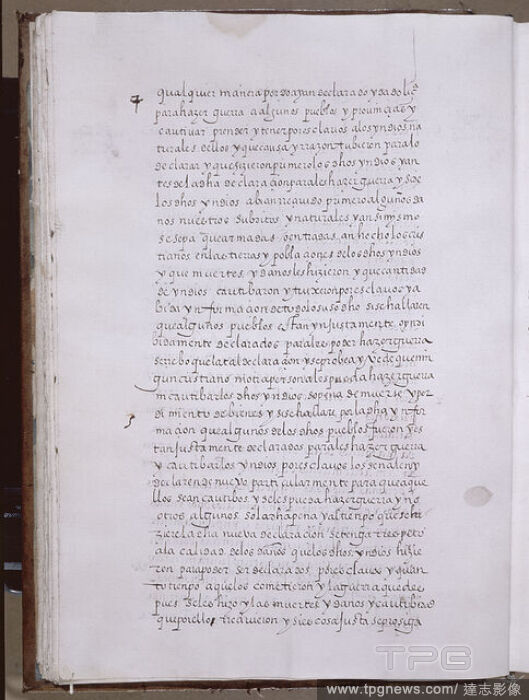 qualquier manera por do ayan declarado y dado liçª
para hazer guerra a algunos pueblos y provincias y
cautivar prender y tener por esclavos a los yndios na
turales dellos y que causa y rrazon tubieron para lo
declarar y que hizieron primero los dhos yndios an
tes de la dha declaracion para les hazer guerra y si de
los dhos yndios abian rreçevido primero algunos da
nos nuestros subditos y naturales y ansimismo
se sepa que armadas o entradas an hecho los cris
tianos en las tierras y poblaçiones de los dhos yndios
y que muertes y danos les hizieron y que cantidad
de yndios cautibaron y truxeron por esclavos y a
bida ynformaçion de todo lo suso dho si se hallaren
que algunos pueblos estan ynjustamente o yndi
bidamente declarados para les poder hazer guerra
se rreboque la tal declaraçion y se probea y vede que nin
gun cristiano ni otra persona les pueda hazer guerra
ni cautibar los dhos yndios so pena de muerte y per
dimiento de bienes y si se hallare por la dha ynfor
maçion que algunos de los dhos pueblos fueron y es
tan justamente declarados para les hazer guerra
y cautibar los yndios por esclavos los senalen y
declaren de nuevo particularmente para que aque
llos sean cautibos y se les pueda hazer guerra y no
otros algunos so la dha pena y al tiempo que se hi
ziere la dha nueva declaraçion se tenga rrespeto
a la calidad de los danos que los dhos yndios hizie
ron para poder ser declarados por esclavos y quan
to tiempo a que los cometieron y la guerra que des
pues se les hizo y las muertes y danos y cautiberio
que por ello rreçivieron y si es cosa justa se prosiga
TPG
www.tpgnews.com / 達志影像